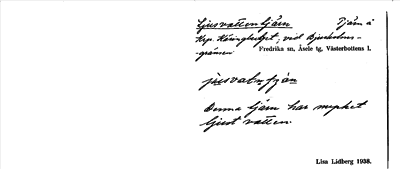 Ljusvattentjärn Tjärn å
Krp. Käringberget, vid Bjurholms-
gränsen Fredrika sn, Åsele tg, Västerbottens l.
Denna tjärn har mycket
ljust vatten.
Lisa Lidberg 1938.